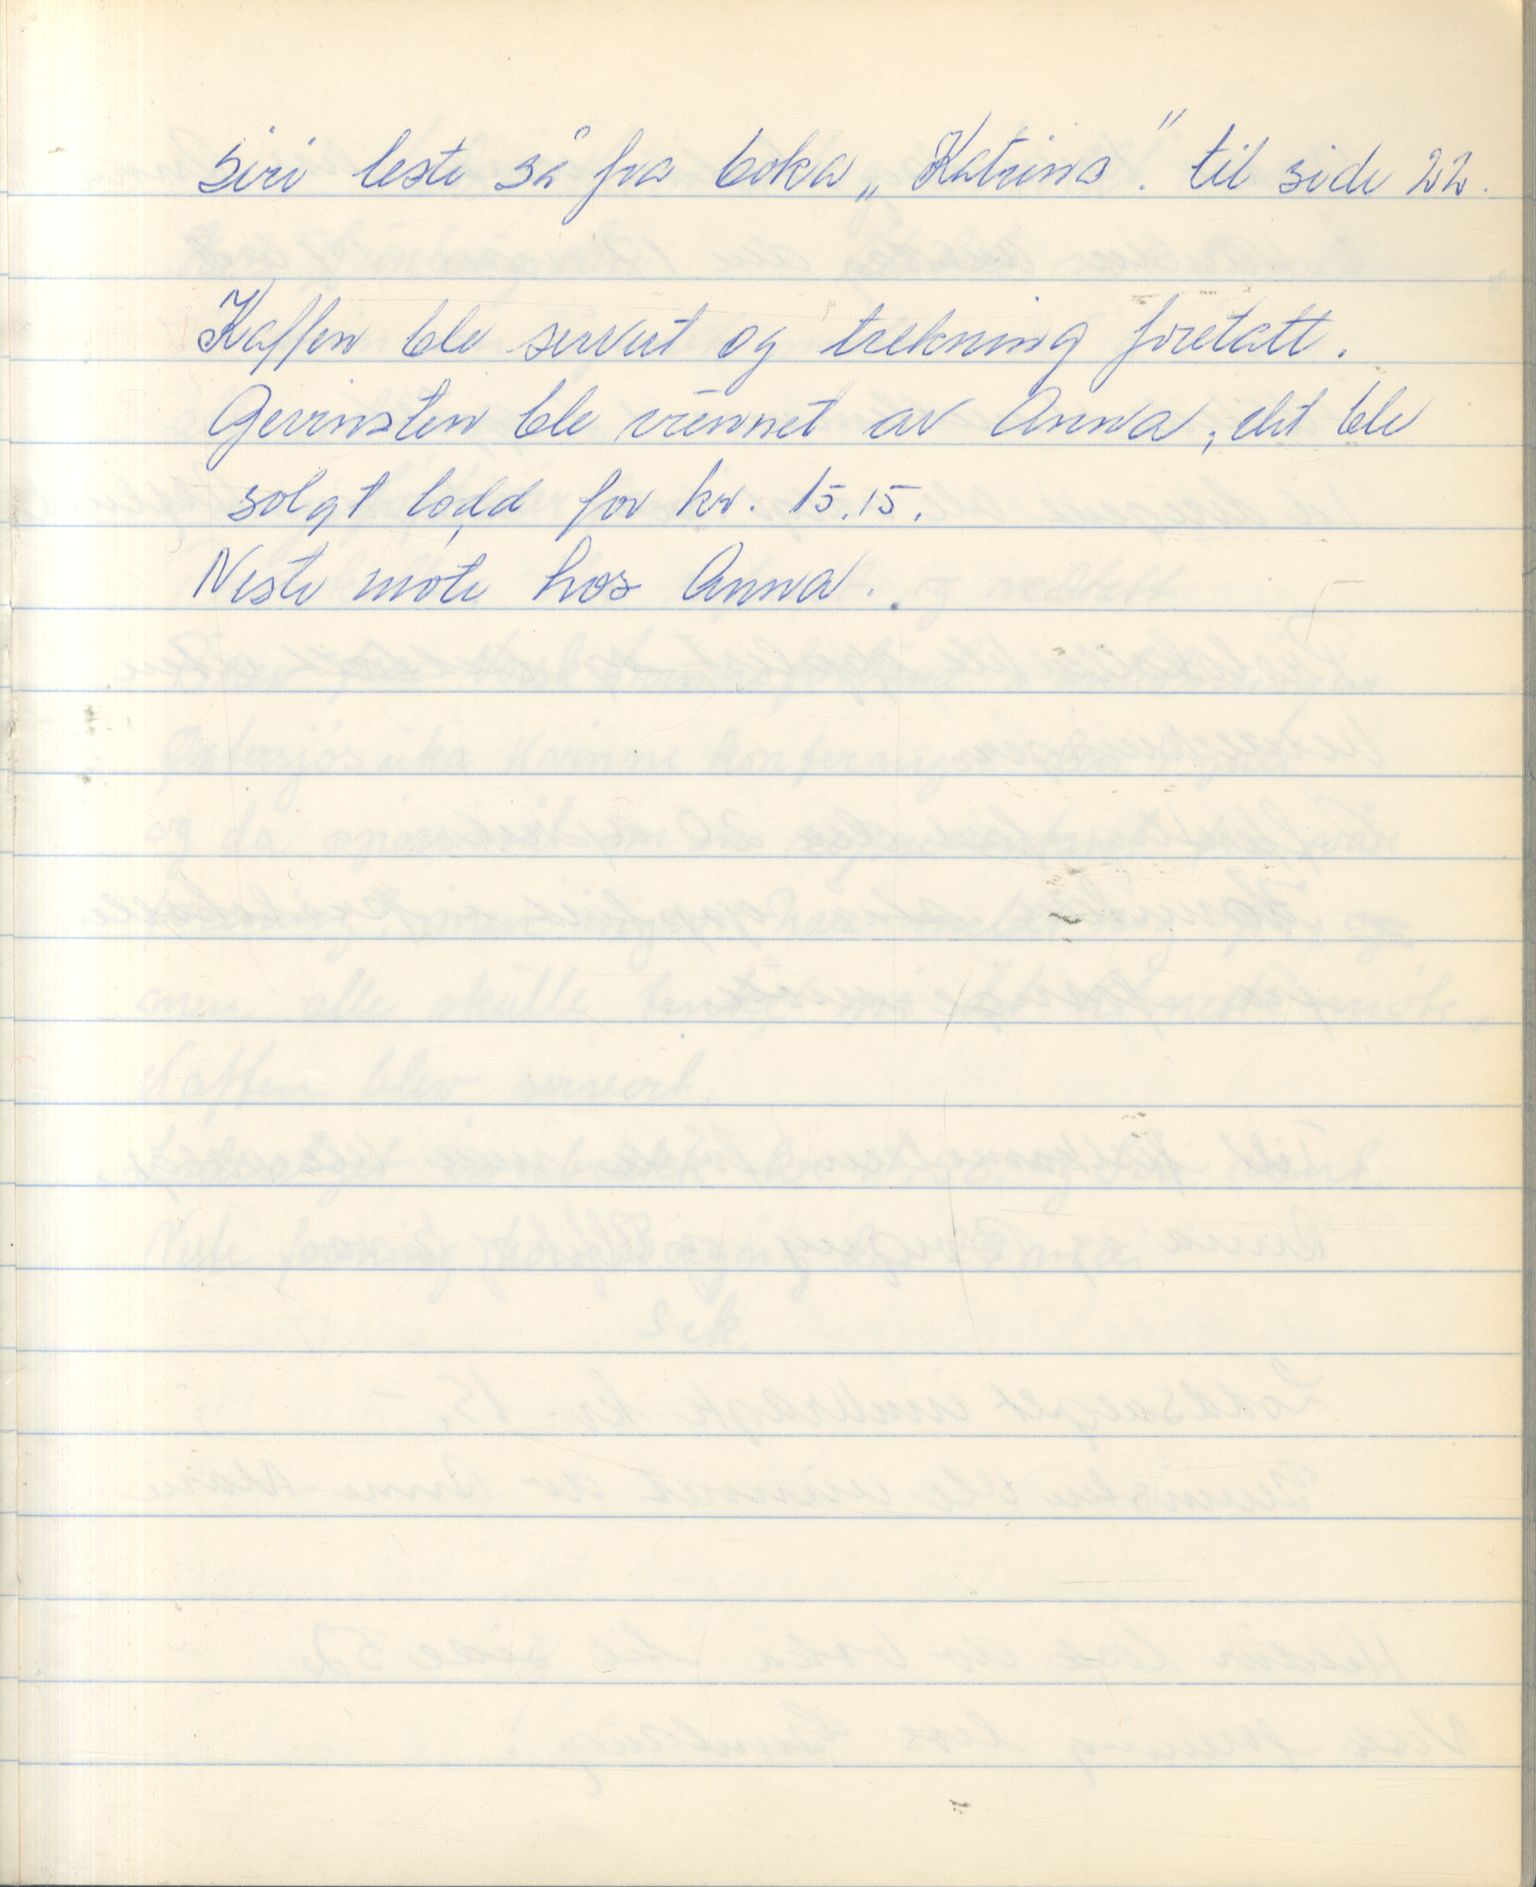 Siri leste så fra boka „Katrina". til side 22.
Kaffen ble servert og trekning foretatt.
Gevinsten ble vunnet av Anna, det ble
solgt lodd for kr. 15.15.
Neste møte hos Anna.